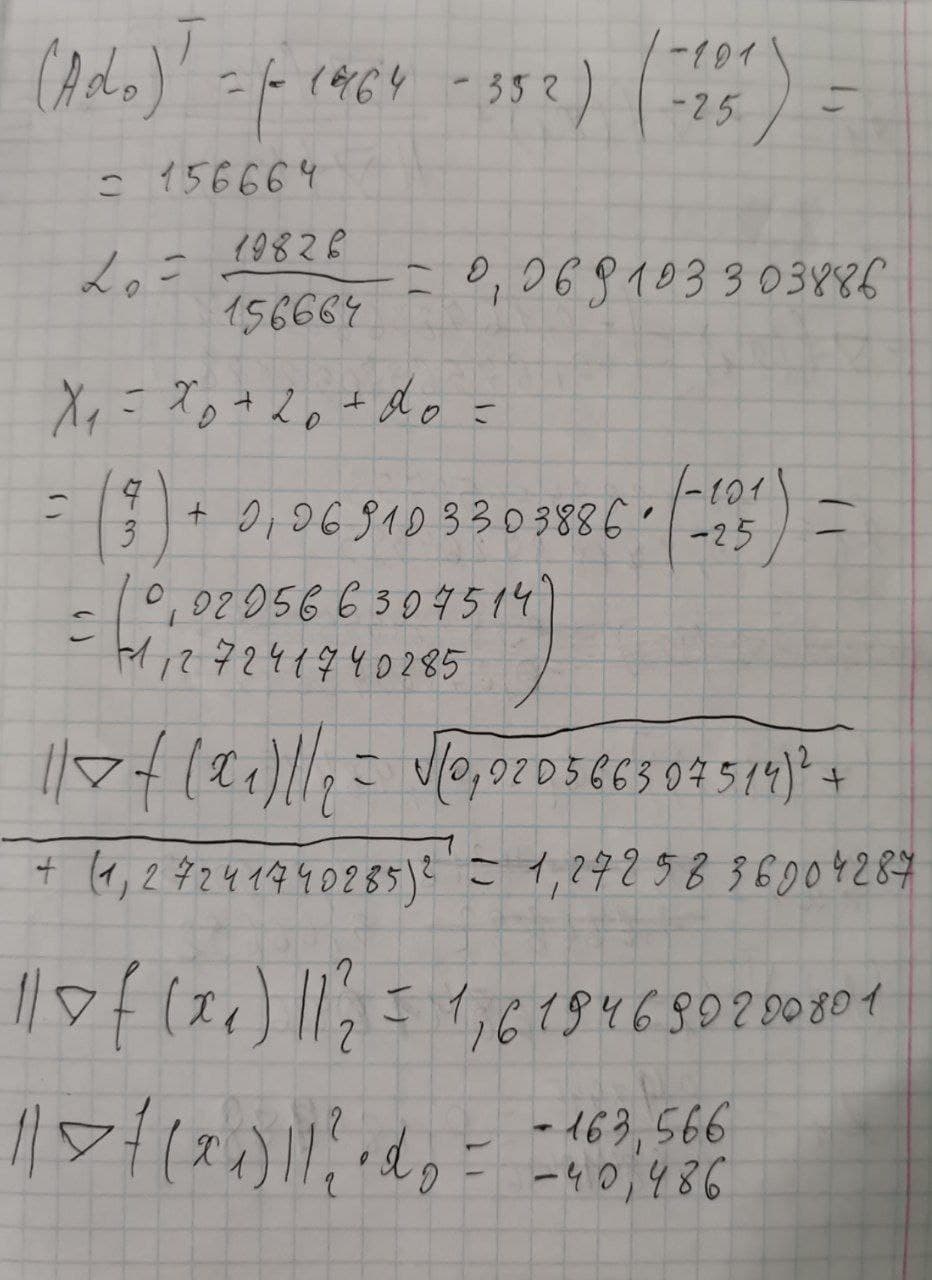 (Ad₀)ᵀ = (-1464 -352) (-101 -25) =
= 156664
α₀ = 10826 / 156664 = 0,069103303886
x₁ = x₀ + α₀ + d₀ =
= (7 3) + 0,069103303886 · (-101 -25) =
= (0,020566307514 -1,27241740285)
||∇f(x₁)||₂ = √(0,020566307514)² +
+ (1,27241740285)² = 1,2725836004287
||∇f(x₁)||₂² = 1,6194690200801
||∇f(x₁)||₂² · d₀ = -163,566 -40,486